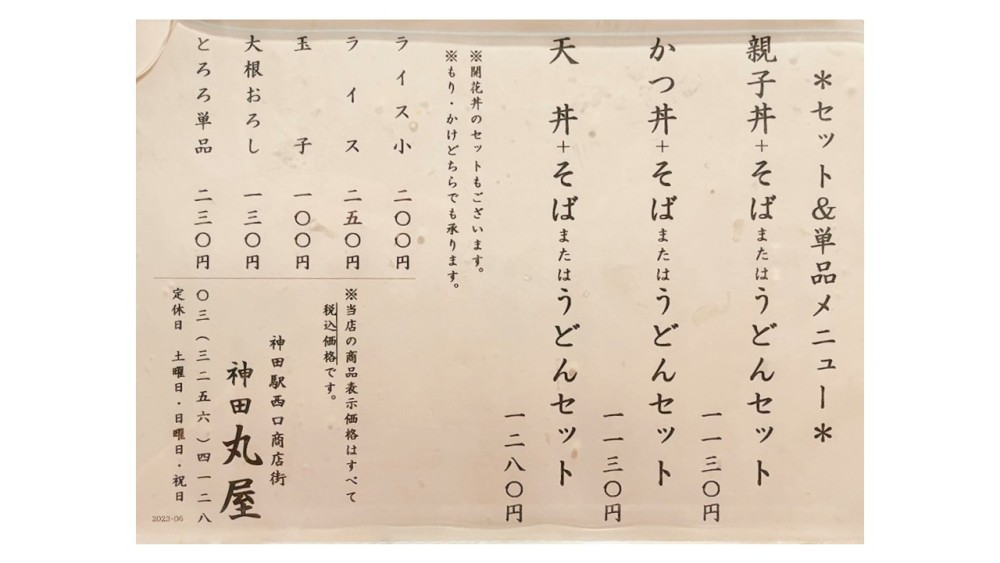 ＊セット＆単品メニュー＊
親子丼＋そばまたはうどんセット
一一三〇円
かつ丼＋そばまたはうどんセット
一一三〇円
天　丼＋そばまたはうどんセット
一二八〇円
※開花丼のセットもございます。
※もり・かけどちらでも承ります。
ライス小　二〇〇円
ライス　二五〇円
玉　子　一〇〇円
大根おろし　一三〇円
とろろ単品　二三〇円
※当店の商品表示価格はすべて
税込価格です。
神田駅西口商店街
神田丸屋
〇三（三二五六）四一二八
定休日　土曜日・日曜日・祝日
2023-06